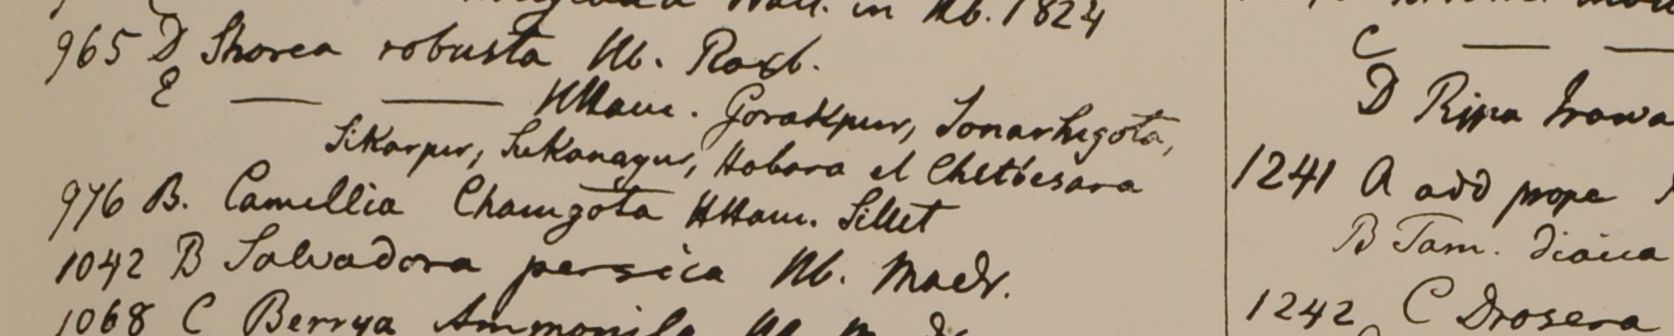 Wall. in Hb. 1824
965 D Shorea robusta Hb. Roxb.
E — — HHam. Gorakpur, Sonarhigota,
Sikarpur, Sukanagur, Habora et
976 B. Camellia Chamgota HHam. Sillet
1042 B Salvadora persica Hb. Madr.
1068 C Berrya Ammonilla Hb. Madr
C — —
D Ripa Irawa
1241 A add prope
B Tam. dioica
1242 C Drosera